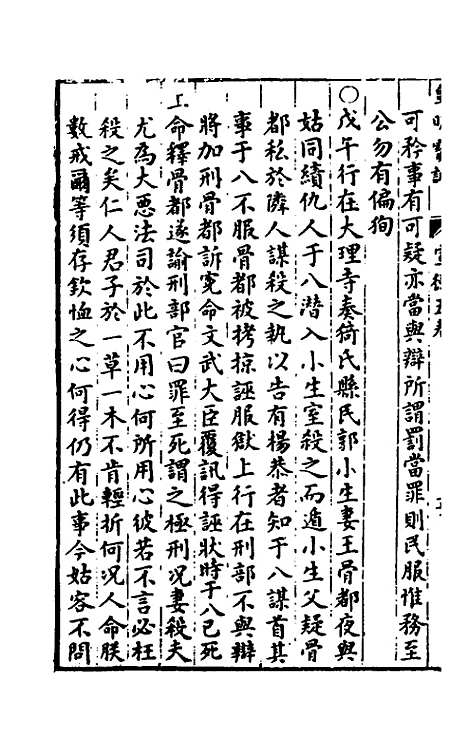 可矜事有可疑亦當與辯所謂罰當罪則民服惟務至
公勿有偏徇
○戊午行在大理寺奏猗氏縣民郭小生妻王骨都夜與
姑同績仇人于八潛入小生室殺之而遁小生父疑骨
都私於隣人謀殺之執以告有楊恭者知于八謀首其
事于八不服骨都被拷掠誣服獄上行在刑部不與辯
將加刑骨都訴冤命文武大臣覆訊得誣狀時于八已死
上命釋骨都遂諭刑部官曰罪至死謂之極刑况妻殺夫
尤為大惡法司於此不用心何所用心彼若不言必枉
殺之矣仁人君子於一草一木不肯輕折何况人命朕
數戒爾等須存欽恤之心何得仍有此事今姑容不問